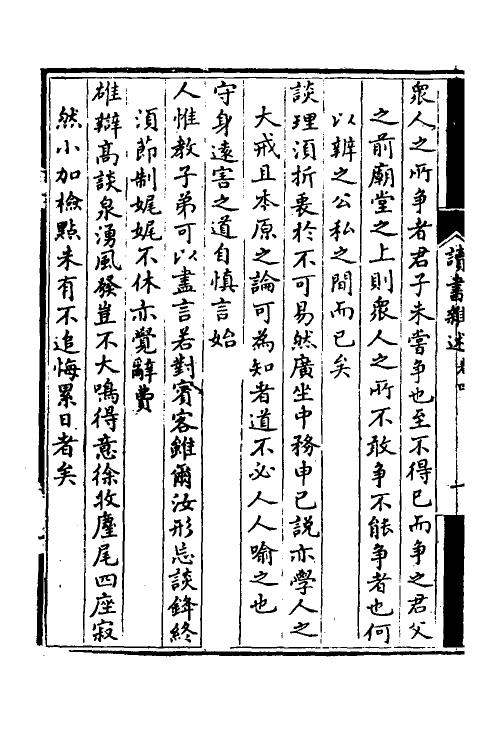 讀書雜述 卷四
一
衆人之所争者君子未嘗争也至不得已而争之君父
之前廟堂之上則衆人之所不敢争不能争者也何
以辨之公私之間而已矣
談理須折衷於不可易然廣坐中務申已説亦學人之
大戒且本原之論可為知者道不必人人喻之也
守身遠害之道自慎言始
人惟教子弟可以盡言若對賓客雖爾汝形忘談鋒終
須節制娓娓不休亦覺辭費
雄辯高談泉湧風發豈不大鳴得意徐牧麈尾四座寂
然小加檢點未有不追悔累日者矣